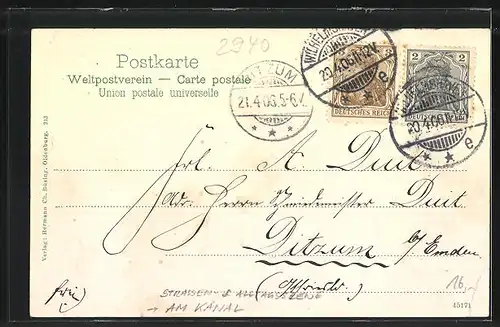 2940
Postkarte
Weltpostverein — Carte postale
Union postale universelle
DITZUM
21.4.06.5-6V.
WILHELMSHAVEN
20.4.06.11-12V.
e
DEUTSCHES REICH
2 2
DEUTSCHES REICH
20.4.06
e
Frl. A. Duit
Adr. Herrn Schmiedemeister Duit
Ditzum b/Emden
(Ostfriesl.)
frei
STRASSEN- & ALLTAGSSZENE
→ AM KANAL
16,-
45171
Verlag: Hermann Ch. Büsing, Oldenburg. 213